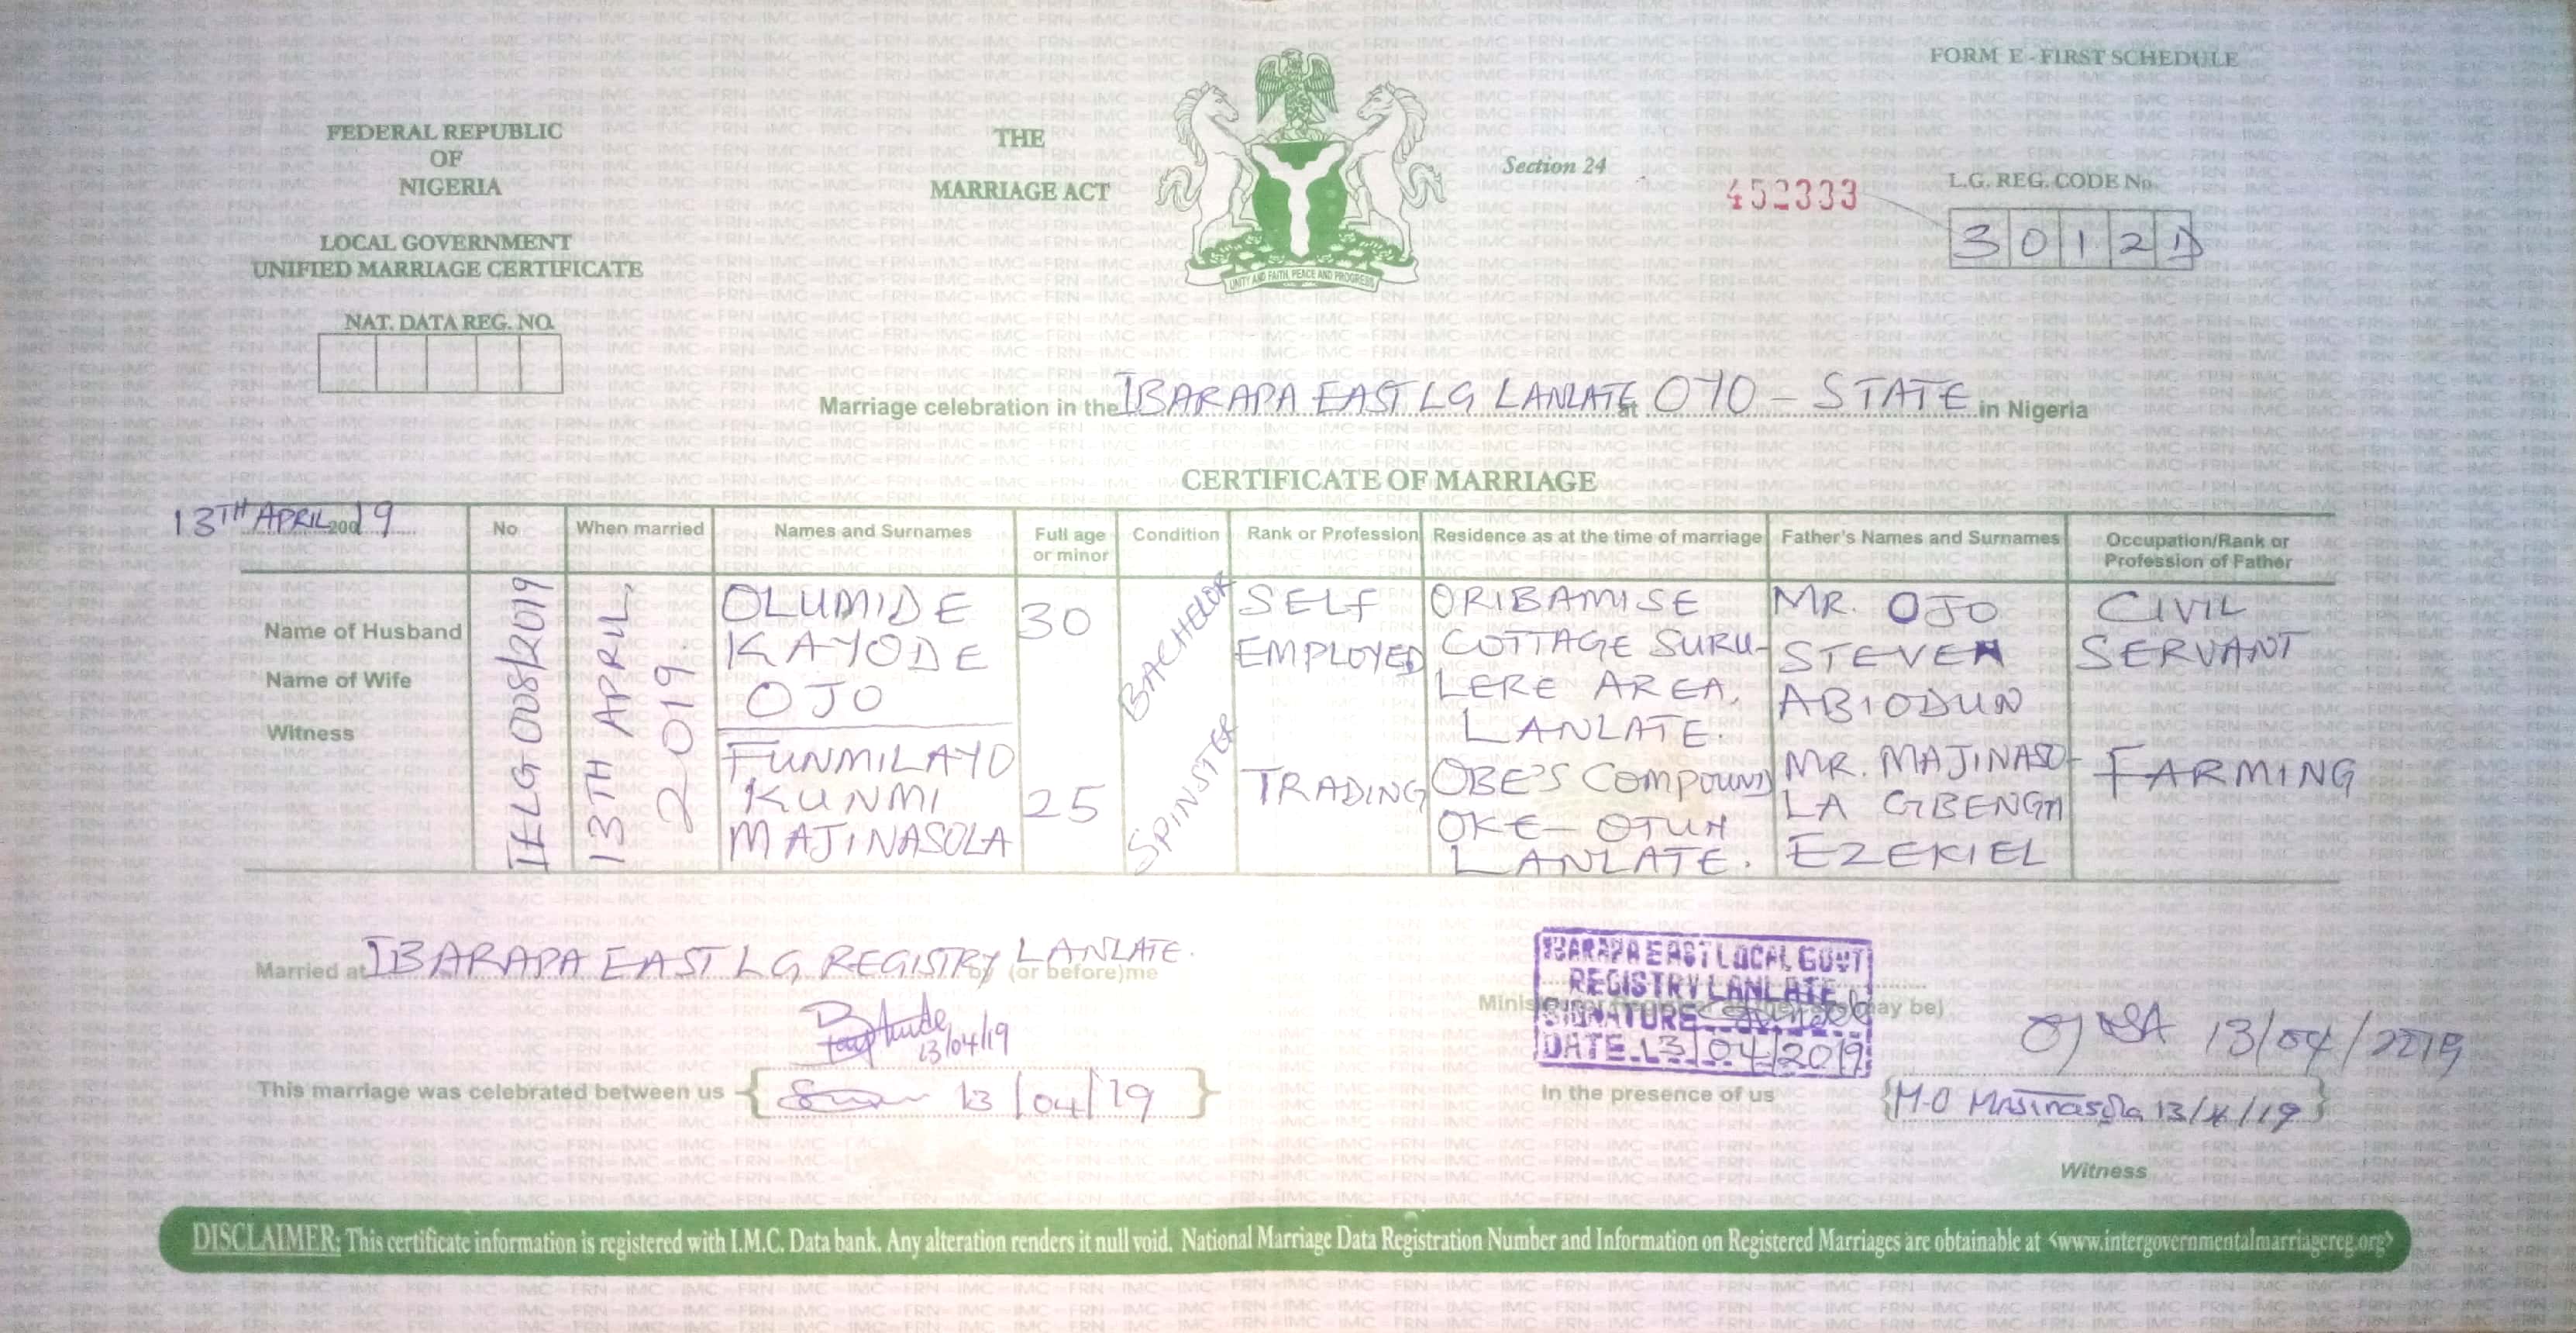 FORM E - FIRST SCHEDULE
FEDERAL REPUBLIC
OF
NIGERIA
LOCAL GOVERNMENT
UNIFIED MARRIAGE CERTIFICATE
NAT. DATA REG. NO.
THE
MARRIAGE ACT
UNITY AND FAITH, PEACE AND PROGRESS
Section 24
452333
L.G. REG. CODE No.
3012D
Marriage celebration in the IBARAPA EAST LG LANLATE at OYO - STATE in Nigeria
CERTIFICATE OF MARRIAGE
13TH APRIL 2019
No
When married
Names and Surnames
Full age
or minor
Condition
Rank or Profession
Residence as at the time of marriage
Father's Names and Surnames
Occupation/Rank or
Profession of Father
Name of Husband
Name of Wife
Witness
IELG 008/2019
13TH APRIL,
2019.
OLUMIDE
KAYODE
OJO
30
BACHELOR
SELF
EMPLOYED
ORIBAMISE
COTTAGE SURU-
LERE AREA,
LANLATE.
MR. OJO
STEVEN
ABIODUN
CIVIL
SERVANT
FUNMILAYO
KUNMI
MAJINASOLA
25
SPINSTER
TRADING
OBE'S COMPOUND
OKE-OTUN
LANLATE.
MR. MAJINASO-
LA GBENGA
EZEKIEL
FARMING
Married at IBARAPA EAST LG REGISTRY LANLATE. by (or before) me
13/04/19
This marriage was celebrated between us 13/04/19
IBARAPA EAST LOCAL GOVT
REGISTRY LANLATE
SIGNATURE
DATE 13/04/2019
may be)
13/04/2019
In the presence of us
M.O Majinasola 13/4/19
Witness
DISCLAIMER: This certificate information is registered with I.M.C. Data bank. Any alteration renders it null void. National Marriage Data Registration Number and Information on Registered Marriages are obtainable at <www.intergovernmentalmarriagereg.org>